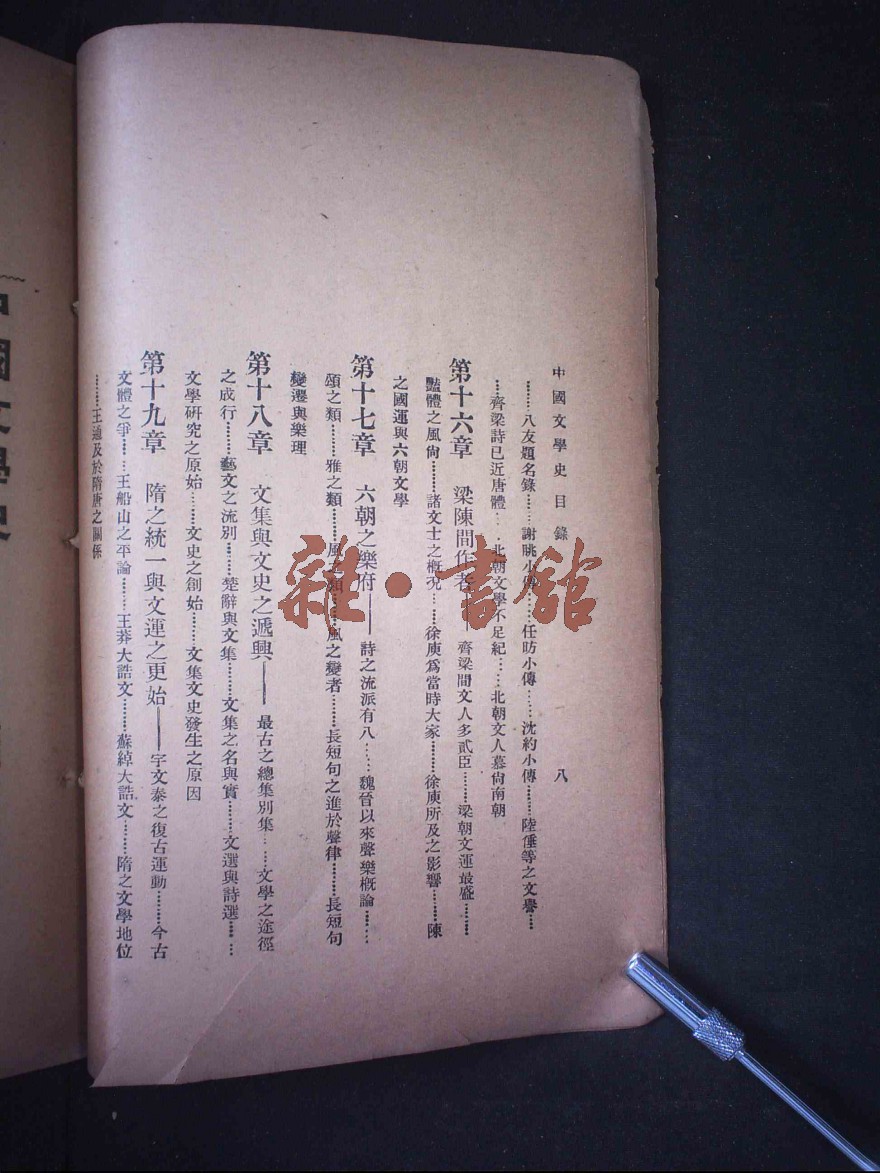 中國文學史目錄 八
……八友題名錄……謝眺小傳……任昉小傳……沈約小傳……陸倕等之文譽……
……齊梁詩已近唐體……北朝文學不足紀……北朝文人慕尙南朝
第十六章 梁陳間作者——齊梁間文人多武臣……梁朝文運最盛……
豔體之風尙……諸文士之槪況……徐庾爲當時大家……徐庾所及之影響……陳
之國運與六朝文學
第十七章 六朝之樂府——詩之流派有八……魏晉以來聲樂槪論……
頌之類……雅之類……風之類……風之變者……長短句之進於聲律……長短句
變遷與樂理
第十八章 文集與文史之遞興——最古之總集別集……文學之途徑
之成行……藝文之流別……楚辭與文集……文集之名與實……文選與詩選……
文學研究之原始……文史之創始……文集文史發生之原因
第十九章 隋之統一與文運之更始——宇文泰之復古運動……今古
文體之爭……王船山之平論……王莽大誥文……蘇綽大誥文……隋之文學地位
……王通及於隋唐之關係
雜·書館
中國文學史